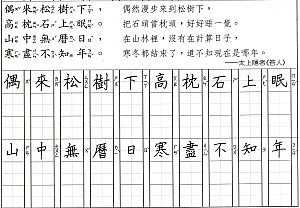 偶來松樹下，
高枕石上眠。
山中無曆日，
寒盡不知年。
偶然漫步來到松樹下，
把石頭當枕頭，好好睡一覺。
在山林裡，沒有在計算日子，
寒冬都結束了，還不知現在是哪年。
──太上隱者《答人》
偶來松樹下高枕石上眠
山中無曆日寒盡不知年